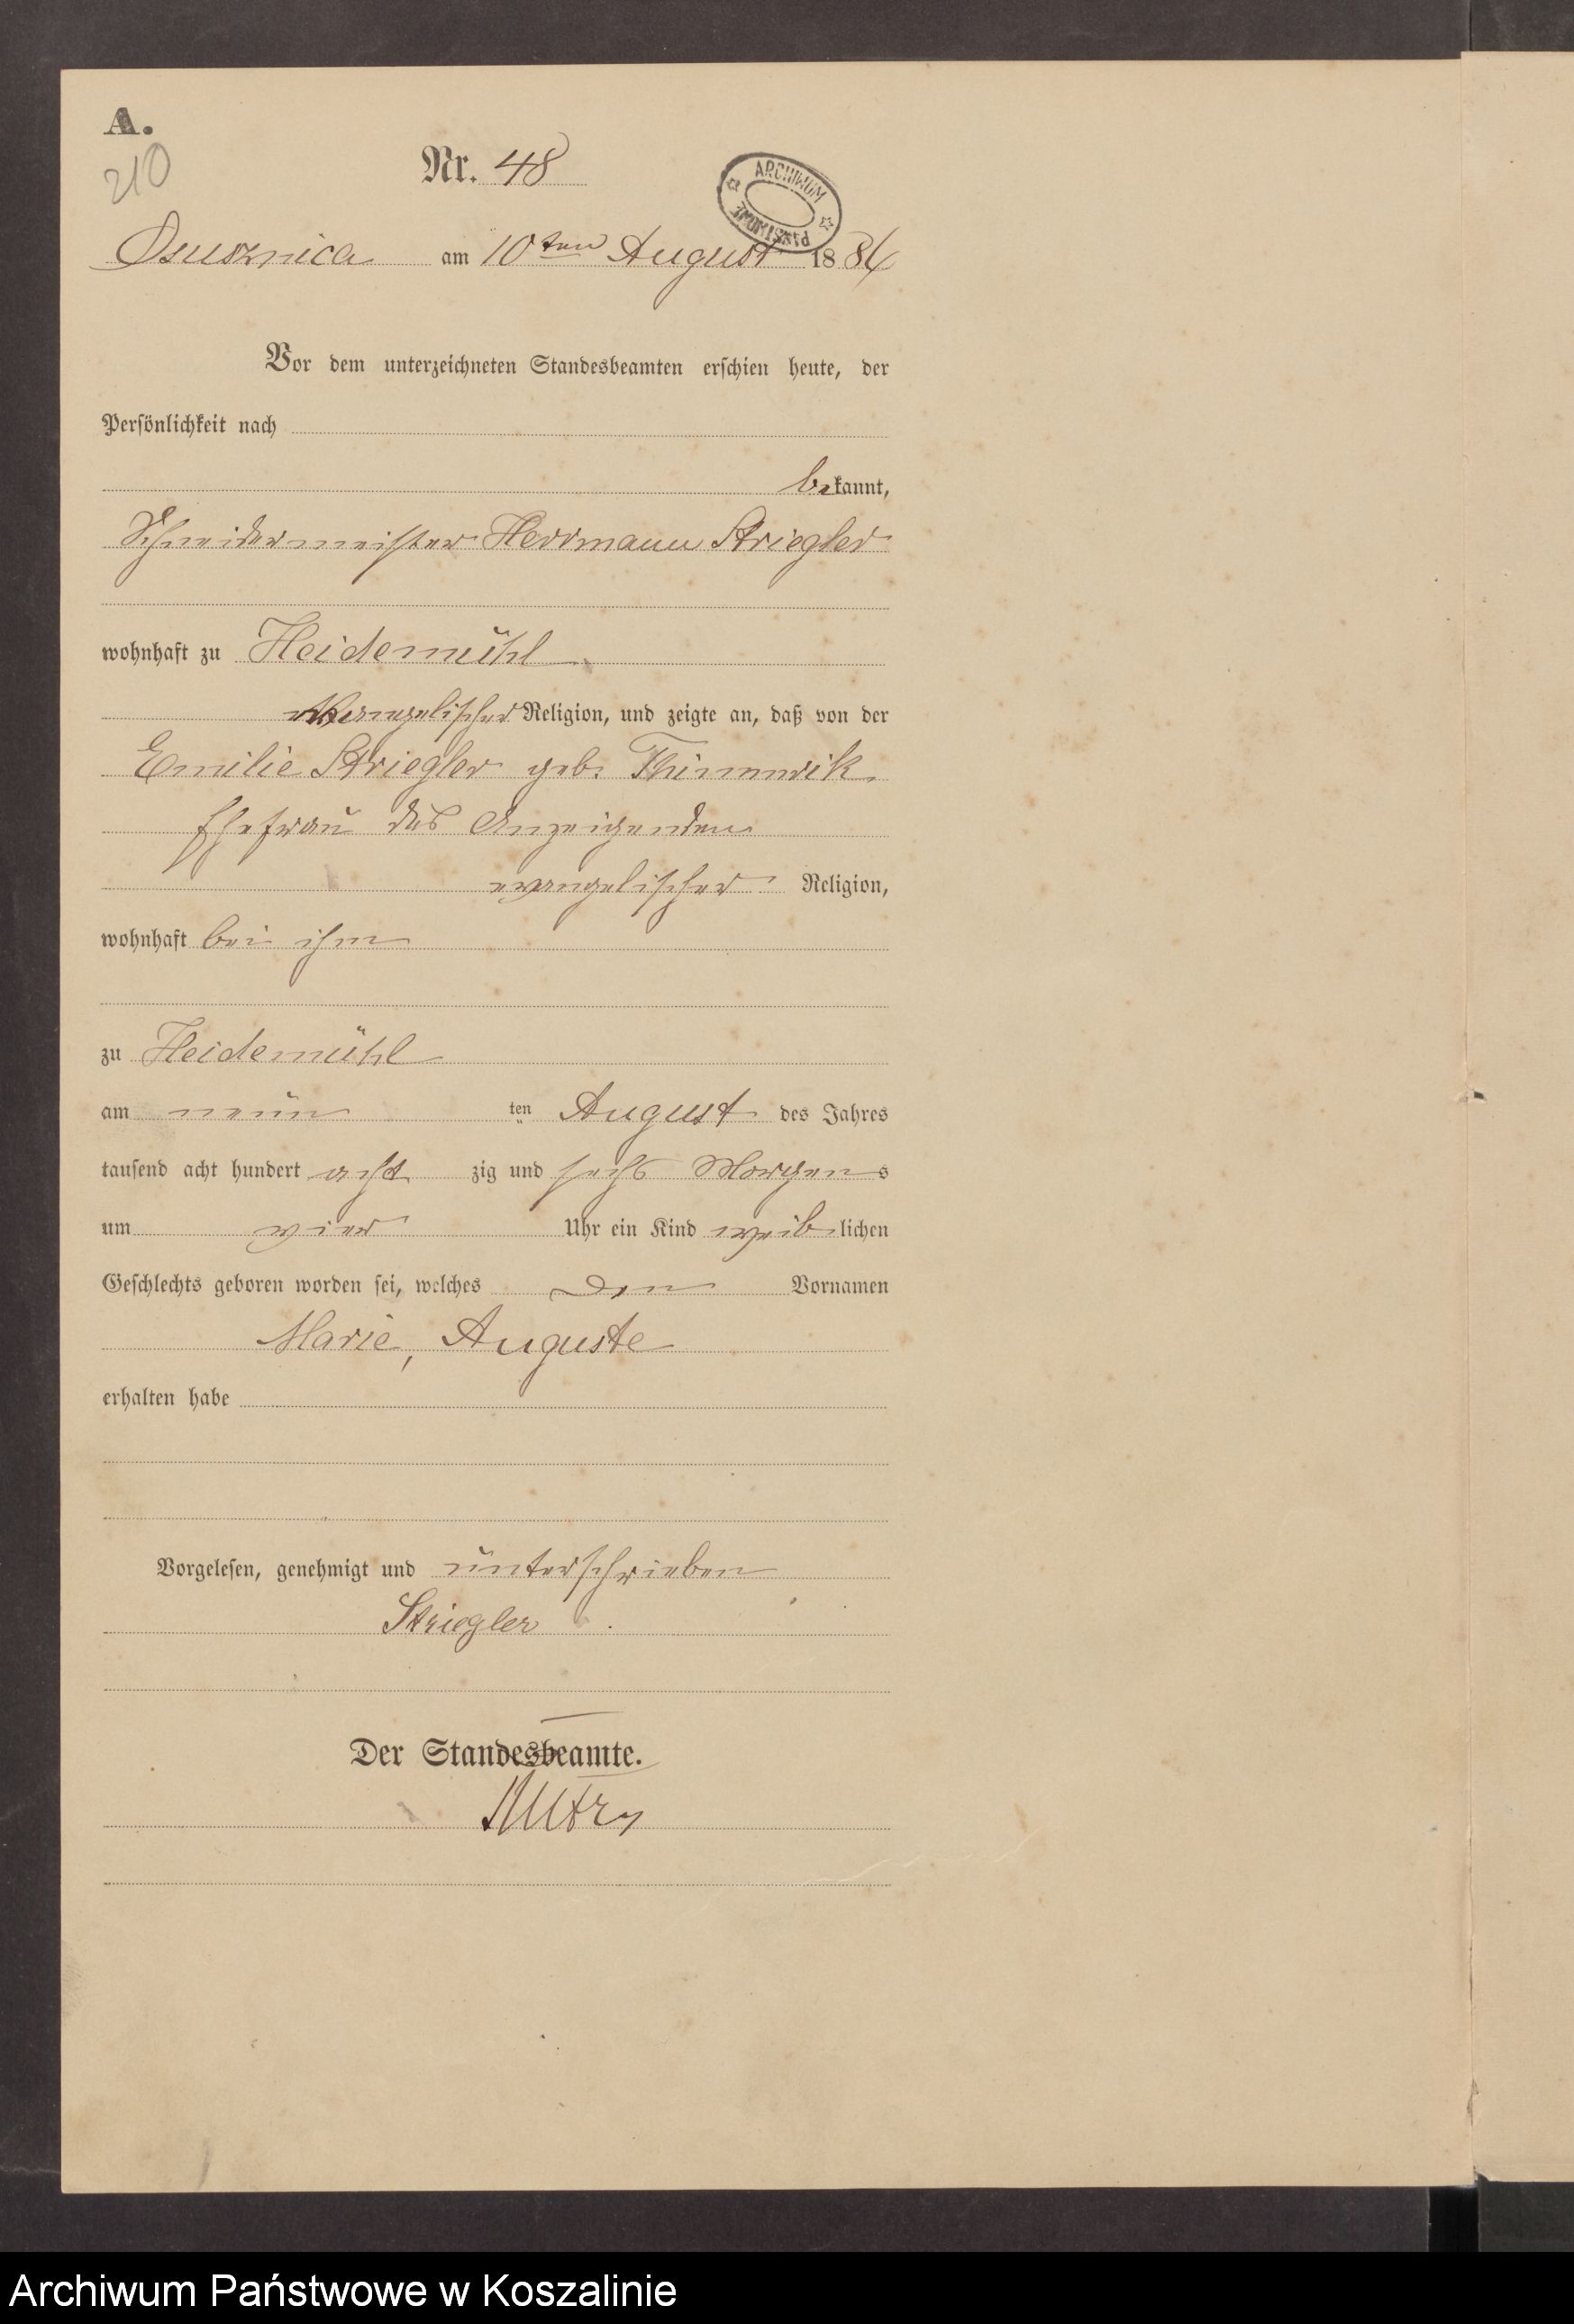 A.
210
Nr. 48
ARCHIWUM PAŃSTWOWE
Osusznica am 10ten August 1886
Vor dem unterzeichneten Standesbeamten erschien heute, der
Persönlichkeit nach
bekannt,
Schneidermeister Herrmann Striegler
wohnhaft zu Heidemühl
evangelischer Religion, und zeigte an, daß von der
Emilie Striegler geb.
Ehefrau des Anzeigenden
evangelischer Religion,
wohnhaft bei ihm
zu Heidemühl
am neun ten August des Jahres
tausend acht hundert acht zig und sechs Morgens
um vier Uhr ein Kind weiblichen
Geschlechts geboren worden sei, welches den Vornamen
Marie, Auguste
erhalten habe
Vorgelesen, genehmigt und unterschrieben
Striegler
Der Standesbeamte.
Archiwum Państwowe w Koszalinie